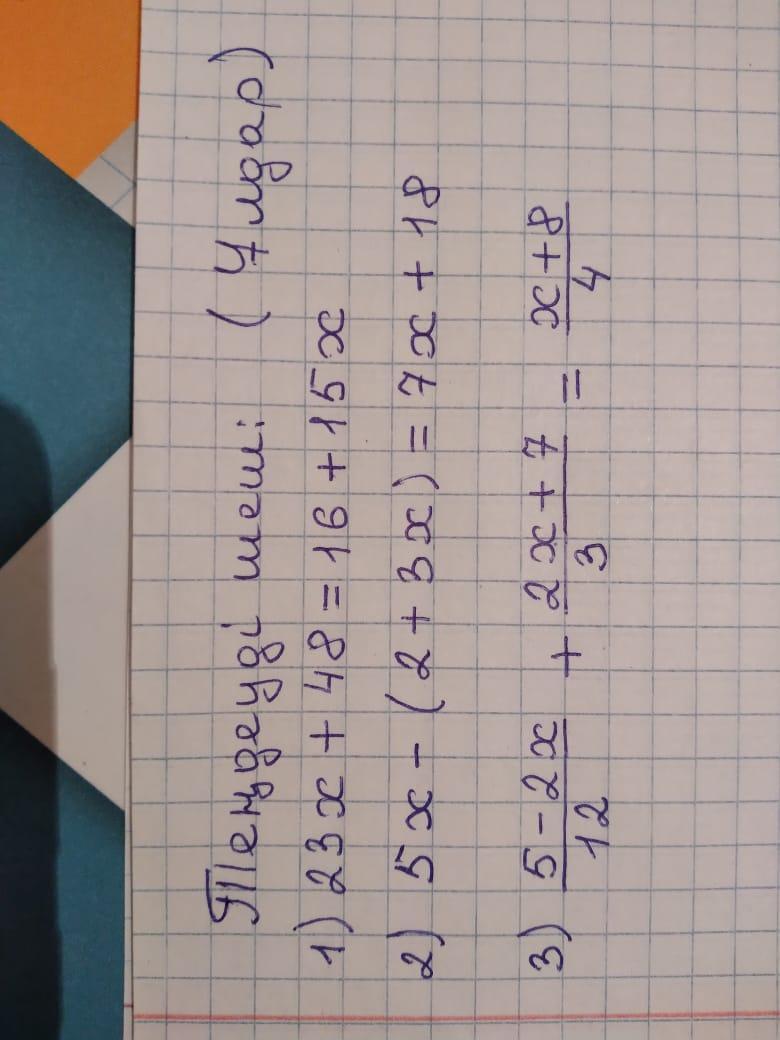 Теңдеуді шеш: (Ұлдар)
1) 23x + 48 = 16 + 15x
2) 5x - (2 + 3x) = 7x + 18
3) \frac{5 - 2x}{12} + \frac{2x + 7}{3} = \frac{x + 8}{4}